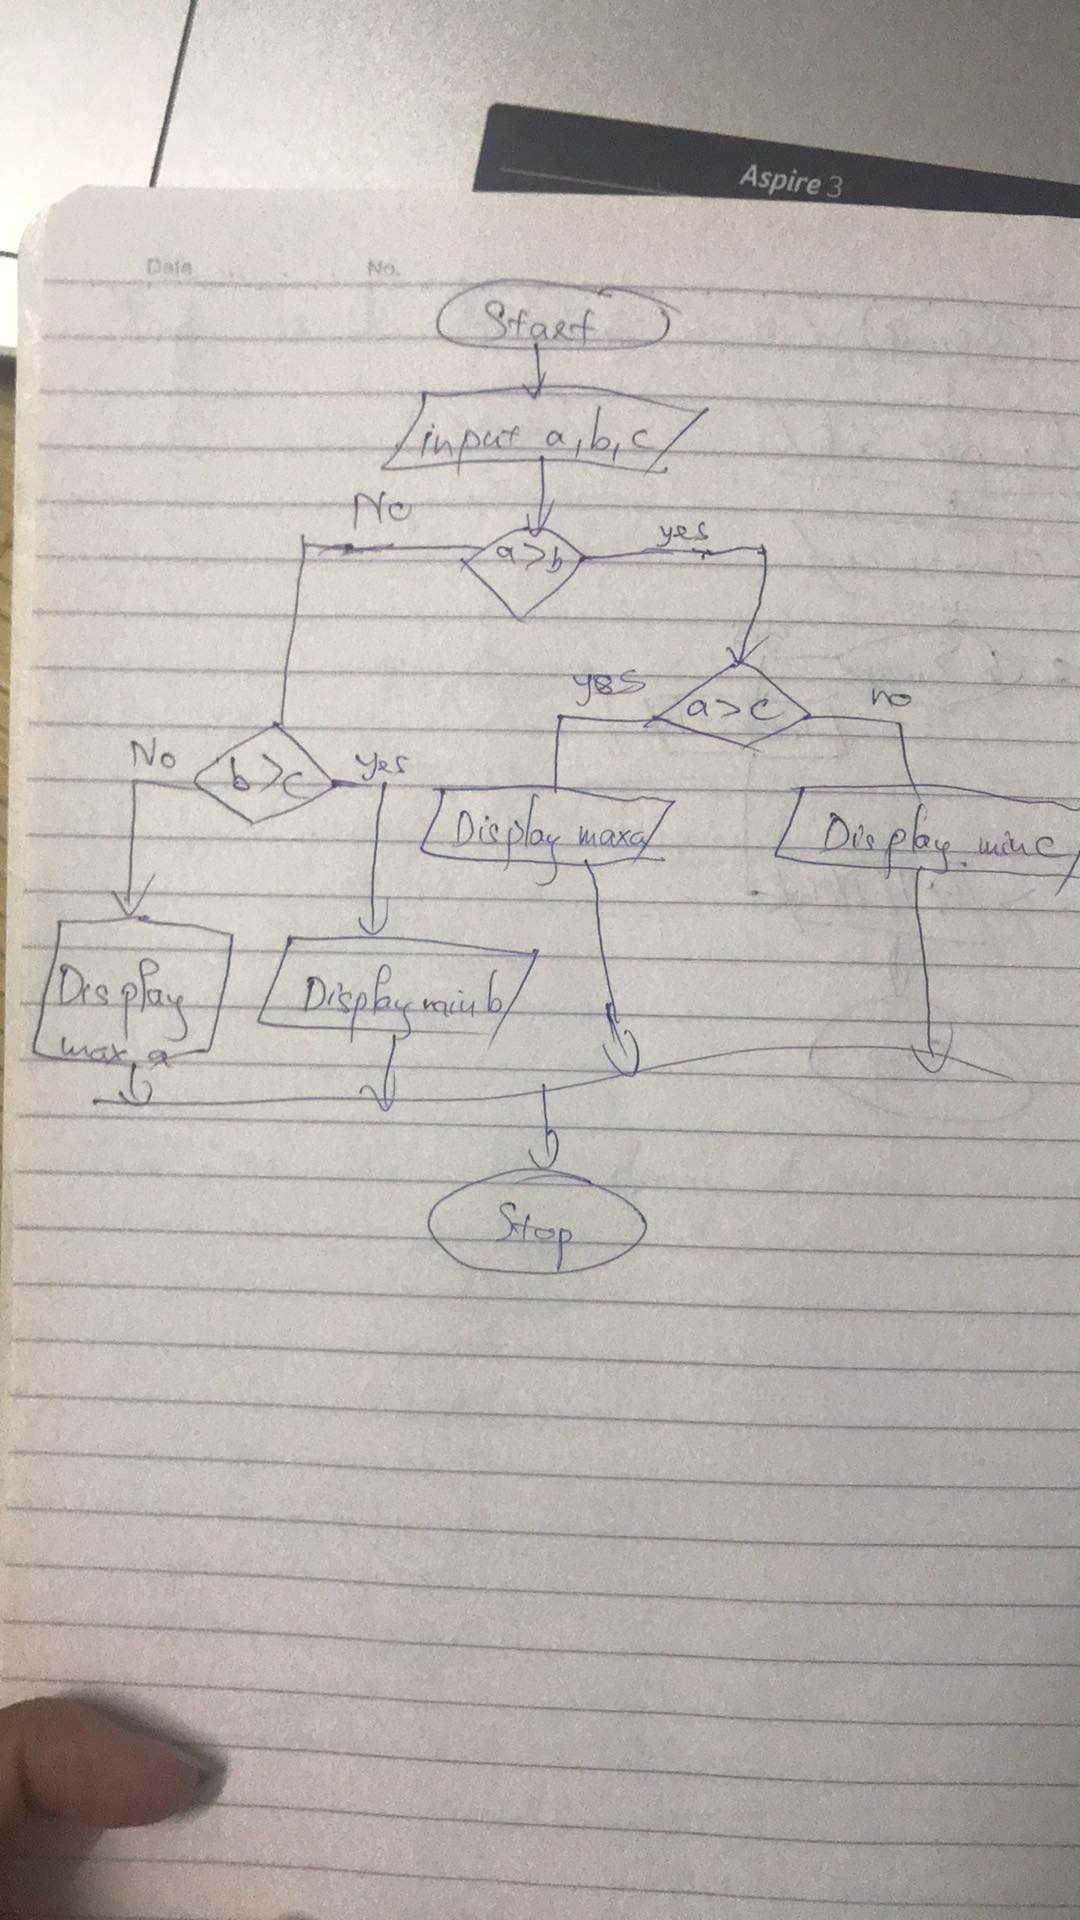 Aspire 3
Date No.
Start
input a, b, c
No
a>b
yes
yes
a>c
no
No
b>c
yes
Display maxa
Display minc
Display
max a
Display minb
Stop